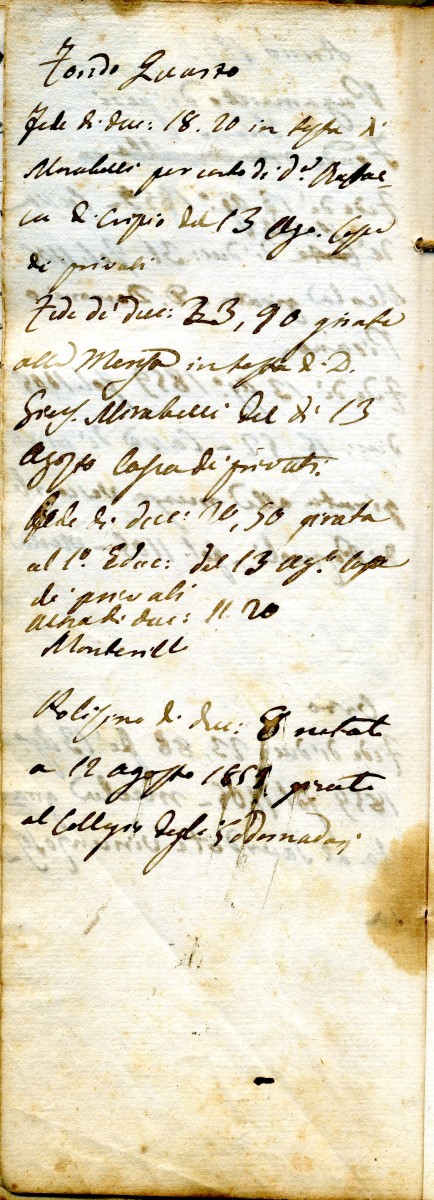 Fondo Quarto
Fede di duc: 18. 20 in testa di
Morabelli per conto di d.ª
di del 13 Ago. Cassa
di privati
Fede di duc: 23, 90 girata
alla Mensa in testa di D.
Morabelli del di 13
Agosto Cassa di privati.
Fede di duc: 10, 50 girata
al 1º Educ: del 13 Agº Cassa
di privati
altra di duc: 11. 20
Polisino di duc: 8 notato
a 12 agosto 1859 girato
al Collegio degli Edomadarj